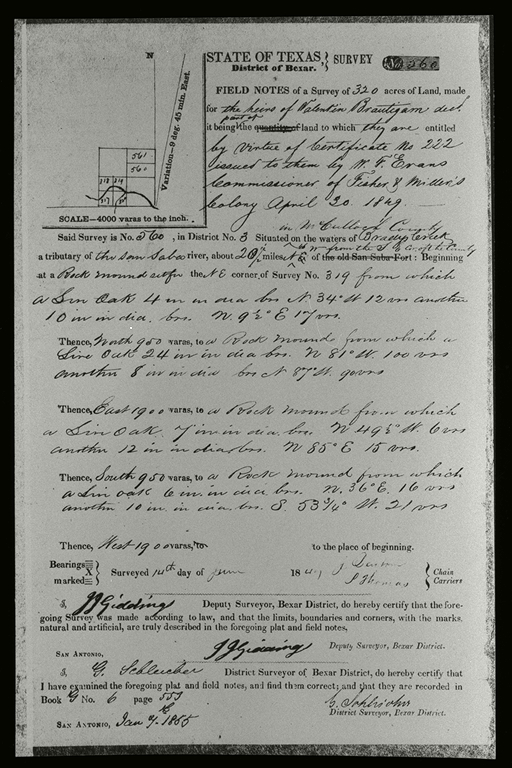 N
STATE OF TEXAS, } SURVEY No 560
District of Bexar.
FIELD NOTES of a Survey of 320 acres of Land, made
for the heirs of Valentin Brautigam decd.
it being the part of quantity of land to which they are entitled
by virtue of Certificate No 222
issued to them by W. F. Evans
Commissioner of Fisher & Miller's
Colony April 20. 1849.
561
560
318 319
317
Variation—9 deg. 45 min. East.
SCALE—4000 varas to the inch.
in McCulloch County
Said Survey is No. 560, in District No. 3 Situated on the waters of Brady's Creek
a tributary of the San Saba river, about 20 miles N of the old San Saba Fort: Beginning
from the S E Cor of the County
at a Rock mound set for the NE corner of Survey No. 319 from which
a Live Oak 4 in in dia brs N 34° W 12 vrs another
10 in in dia. brs. N. 9½° E 17 vrs.
Thence, North 950 varas, to a Rock mound from which a
Live Oak 24 in in dia brs. N 81° W. 100 vrs
another 8 in in dia brs N 87° W. 90 vrs
Thence, East 1900 varas, to a Rock mound from which
a Live Oak 7 in in dia. brs. N 49½° W 6 vrs
another 12 in in dia brs. N 85° E 15 vrs.
Thence, South 950 varas, to a Rock mound from which
a Live oak 6 in. in dia brs. N. 36° E. 16 vrs
another 10 in. in dia. brs. S. 53¾° W. 21 vrs
Thence, West 1900 varas, to to the place of beginning.
Bearings X marked } Surveyed 14th day of June 1849 { Chain Carriers
S Thomas
I, J J Gidding Deputy Surveyor, Bexar District, do hereby certify that the fore-
going Survey was made according to law, and that the limits, boundaries and corners, with the marks,
natural and artificial, are truly described in the foregoing plat and field notes,
J J Gidding
SAN ANTONIO, Deputy Surveyor, Bexar District.
I, G. Schleicher District Surveyor of Bexar District, do hereby certify that
I have examined the foregoing plat and field notes, and find them correct; and that they are recorded in
Book G No. 6 page 553
G. Schleicher
SAN ANTONIO, Jan 1855 District Surveyor, Bexar District.